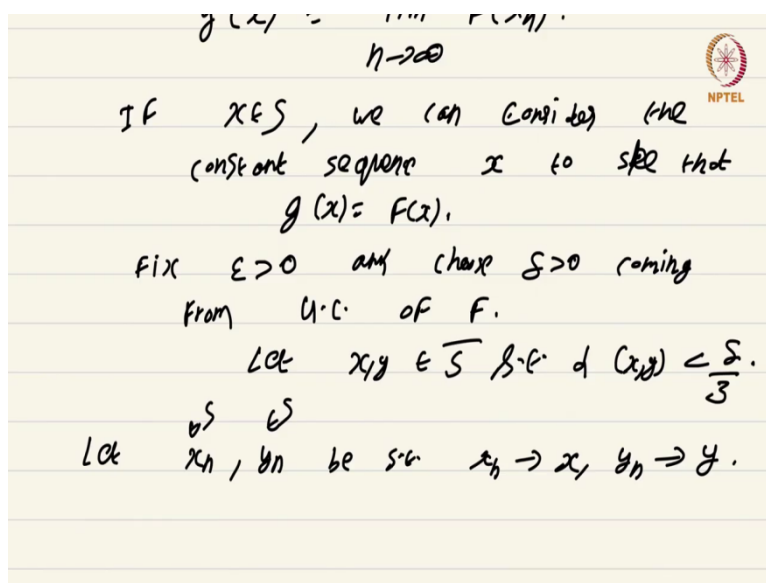 g(x) = lim F(xn).
n→∞
NPTEL
If x∈S, we can consider the
constant sequence x to see that
g(x) = F(x).
Fix ε>0 and choose δ>0 coming
from u.c. of F.
Let x,y ∈ S̅ s.t. d(x,y) < δ/3.
∈S ∈S
Let xn, yn be s.t. xn → x, yn → y.